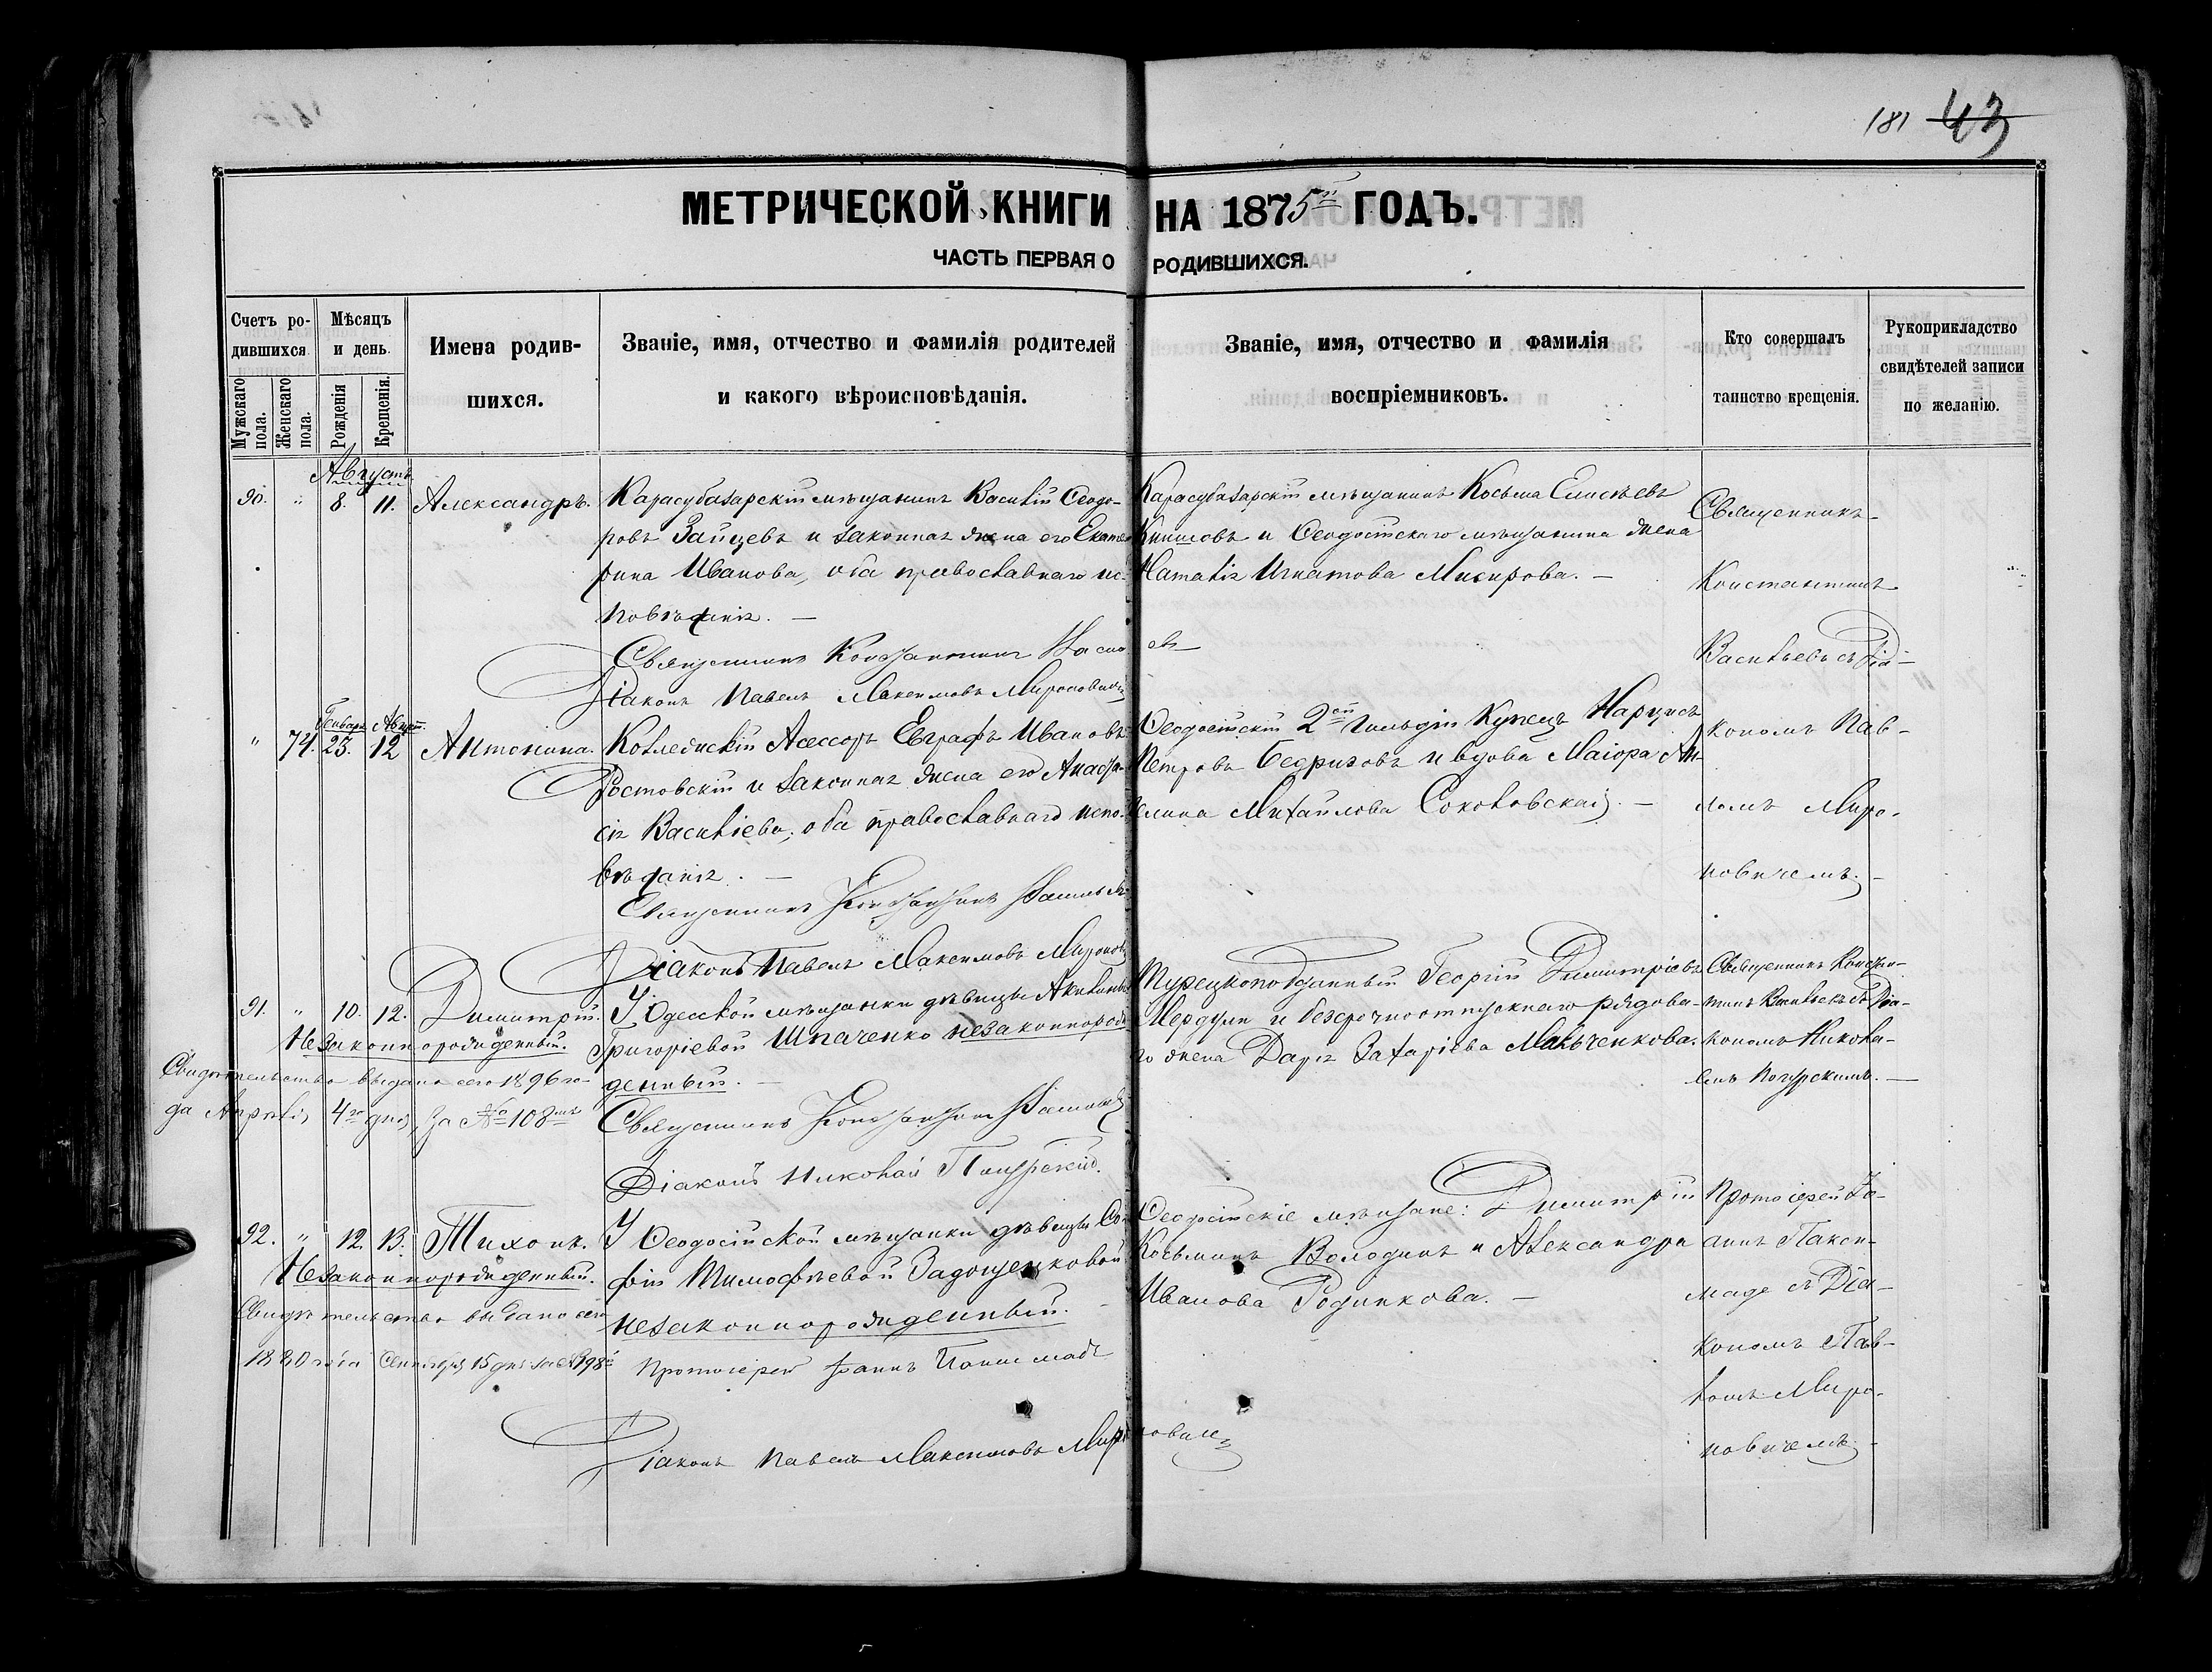 181 43
МЕТРИЧЕСКОЙ КНИГИ НА 1875й ГОДЪ.
ЧАСТЬ ПЕРВАЯ О РОДИВШИХСЯ.
Счетъ родившихся.
Мужскаго пола.
Женскаго пола.
Мѣсяцъ и день.
Рожденія
Крещенія.
Имена родив-
шихся.
Званіе, имя, отчество и фамилія родителей
и какого вѣроисповѣданія.
Званіе, имя, отчество и фамилія
воспріемниковъ.
Кто совершалъ
таинство крещенія.
Рукоприкладство
свидѣтелей записи
по желанію.
Августъ
90. " 8. 11. Александръ.
Карасубазарскій мѣщанинъ Василій Ѳеодо-
ровъ Зайцевъ и законная жена его Екате-
рина Иванова, оба православнаго ис-
повѣданія. —
Священникъ Константинъ
Діаконъ Павелъ Максимовъ Мироновичъ
Карасубазарскій мѣщанинъ Косьма Елисѣевъ
и Ѳеодосійскаго мѣщанина жена
Наталія Игнатова
Священникъ
Константинъ
Васильевъ съ Діа-
кономъ Пав-
ломъ Миро-
новичемъ. —
Генварь Август.
" 74. 25. 12 Антонина.
Коллежскій Асессоръ Евграфъ Ивановъ
Ростовскій и законная жена его Анаста-
сія Васильева, оба православнаго испо-
вѣданія. —
Священникъ Константинъ Васильевъ
Діаконъ Павелъ Максимовъ Мироновичъ
Ѳеодосійскій 2ой Гильдіи Купецъ Наркисъ
Петровъ Бедризовъ и вдова Маіора Ан-
гелина Михайлова Соколовская. —
91. " 10. 12. Димитрій.
Незаконнорожденный.
Свидѣтельство выдано сего 1896 го-
да Апрѣля 4го дня за № 108мъ
У Одесской мѣщанки дѣвицы Акилины
Григоріевой Шпаченко незаконнорож-
денный. —
Священникъ Константинъ Васильевъ
Діаконъ Николай
Турецкоподданный Георгій Димитріевъ
Мердули и безсрочноотпускнаго рядова-
го жена Дарія Захаріева Мальченкова.
Священникъ Констан-
тинъ Васильевъ съ Діа-
кономъ Никола-
емъ
92. " 12. 13. Тихонъ.
Незаконнорожденный.
Свидѣтельство выдано сего
1880 года Сентября 15 дня за № 198
У Ѳеодосійской мѣщанки дѣвицы Со-
фіи Тимофѣевой Задощенковой
незаконнорожденный. —
Протоіерей Іоаннъ
Діаконъ Павелъ Максимовъ Мироновичъ
Ѳеодосійскіе мѣщане: Димитрій
Косьминъ Володинъ и Александра
Иванова Родинкова. —
Протоіерей Іо-
аннъ Пакси-
маде съ Діа-
кономъ Пав-
ломъ Миро-
новичемъ. —